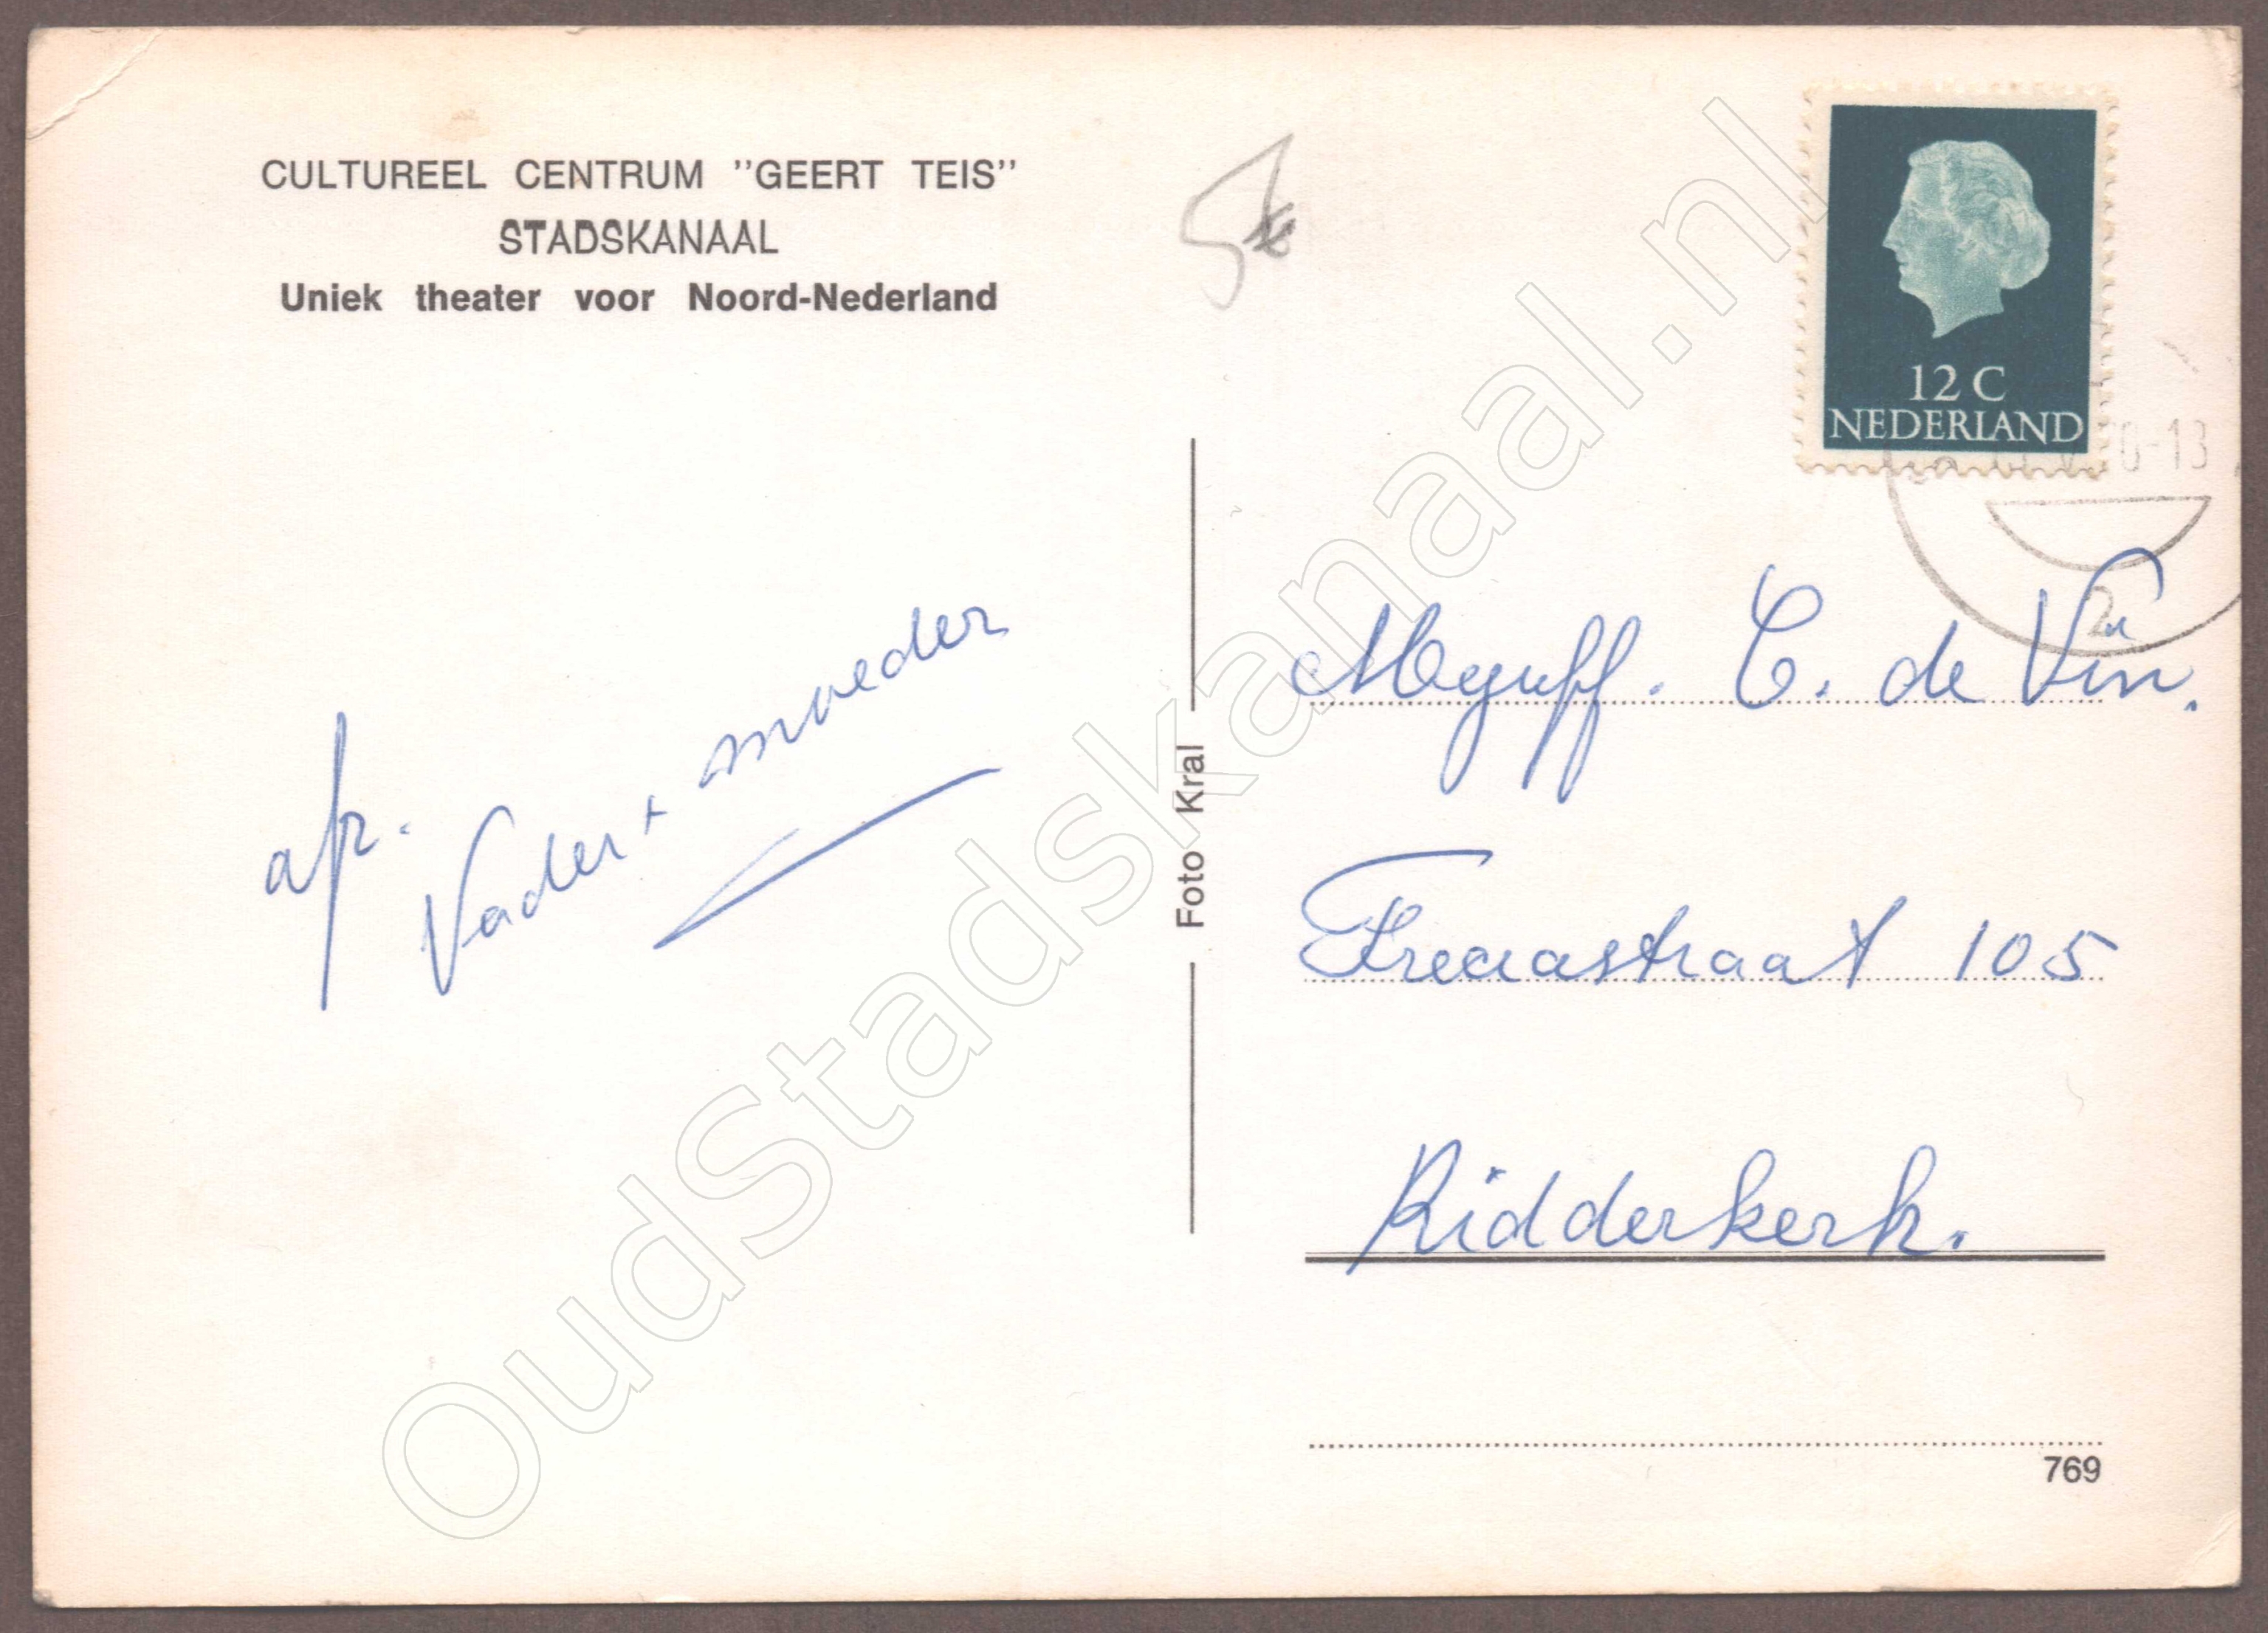 CULTUREEL CENTRUM "GEERT TEIS"
STADSKANAAL
Uniek theater voor Noord-Nederland
afz.
Vader + moeder
Foto Kral
12 C
NEDERLAND
0-13
2
Mejuff. C. de Vin.
105
Ridderkerk.
769
OudStadskanaal.nl